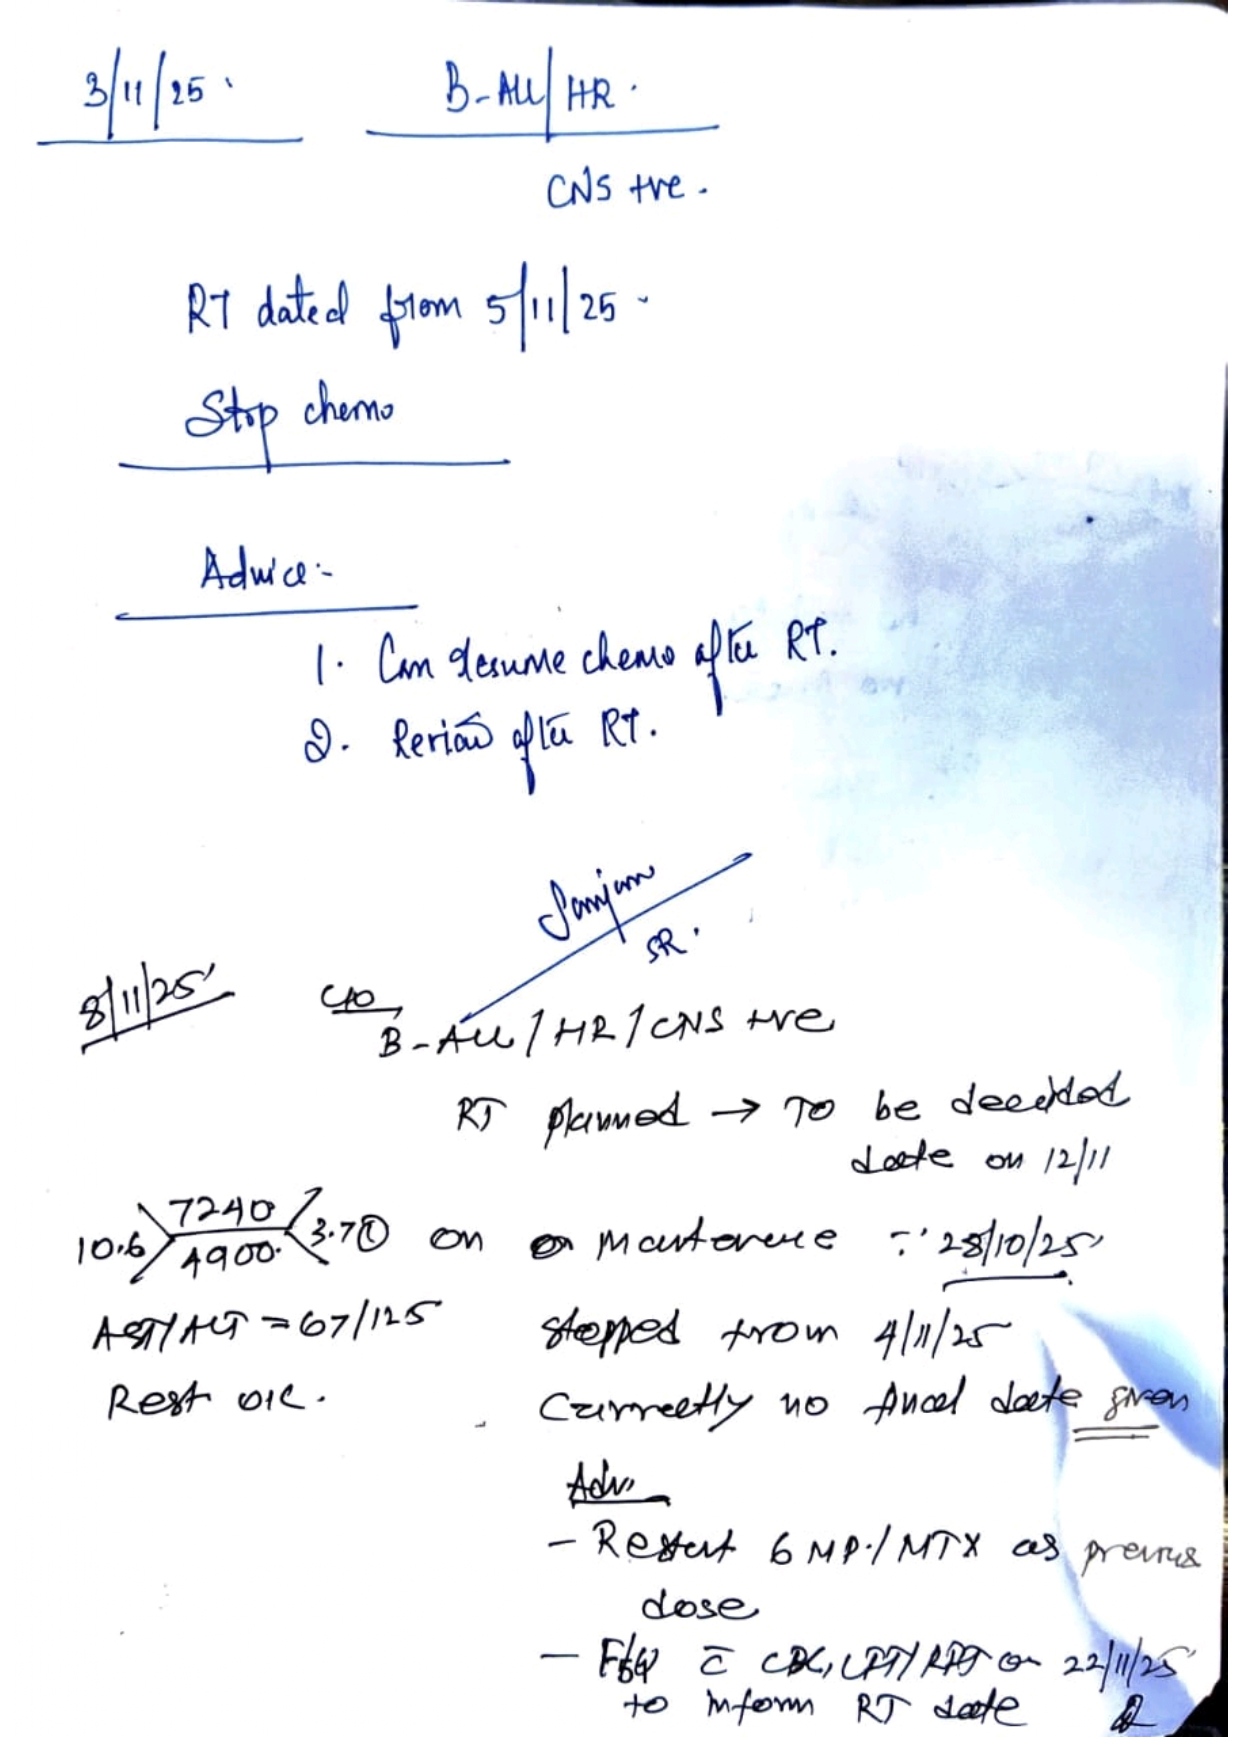 3/11/25. B-ALL/HR.
CNS +ve.
RT dated from 5/11/25.
Stop chemo
Advice:-
1. Can resume chemo after RT.
2. Review after RT.
SR.
8/11/25 C/O
B-ALL/HR/CNS +ve
RT planned → To be decided
date on 12/11
10.6 7240 3.7L on maintenance ∵ 28/10/25
4900
AST/ALT = 67/125 stopped from 4/11/25
Rest OK. Currently no final date given
Adv.
- Restart 6MP/MTX as previous
dose
- F/U c̄ CBC, LFT/RFT on 22/11/25
to inform RT date